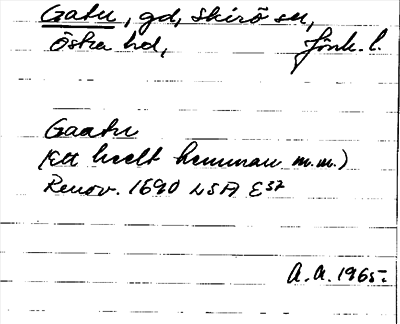 Gatu, gd, Skirö sn,
Östra hd, Jönk. l.
Gaatu
(Ett heelt hemman m.m.)
Renov. 1690 LSA E32
A.A. 1965.